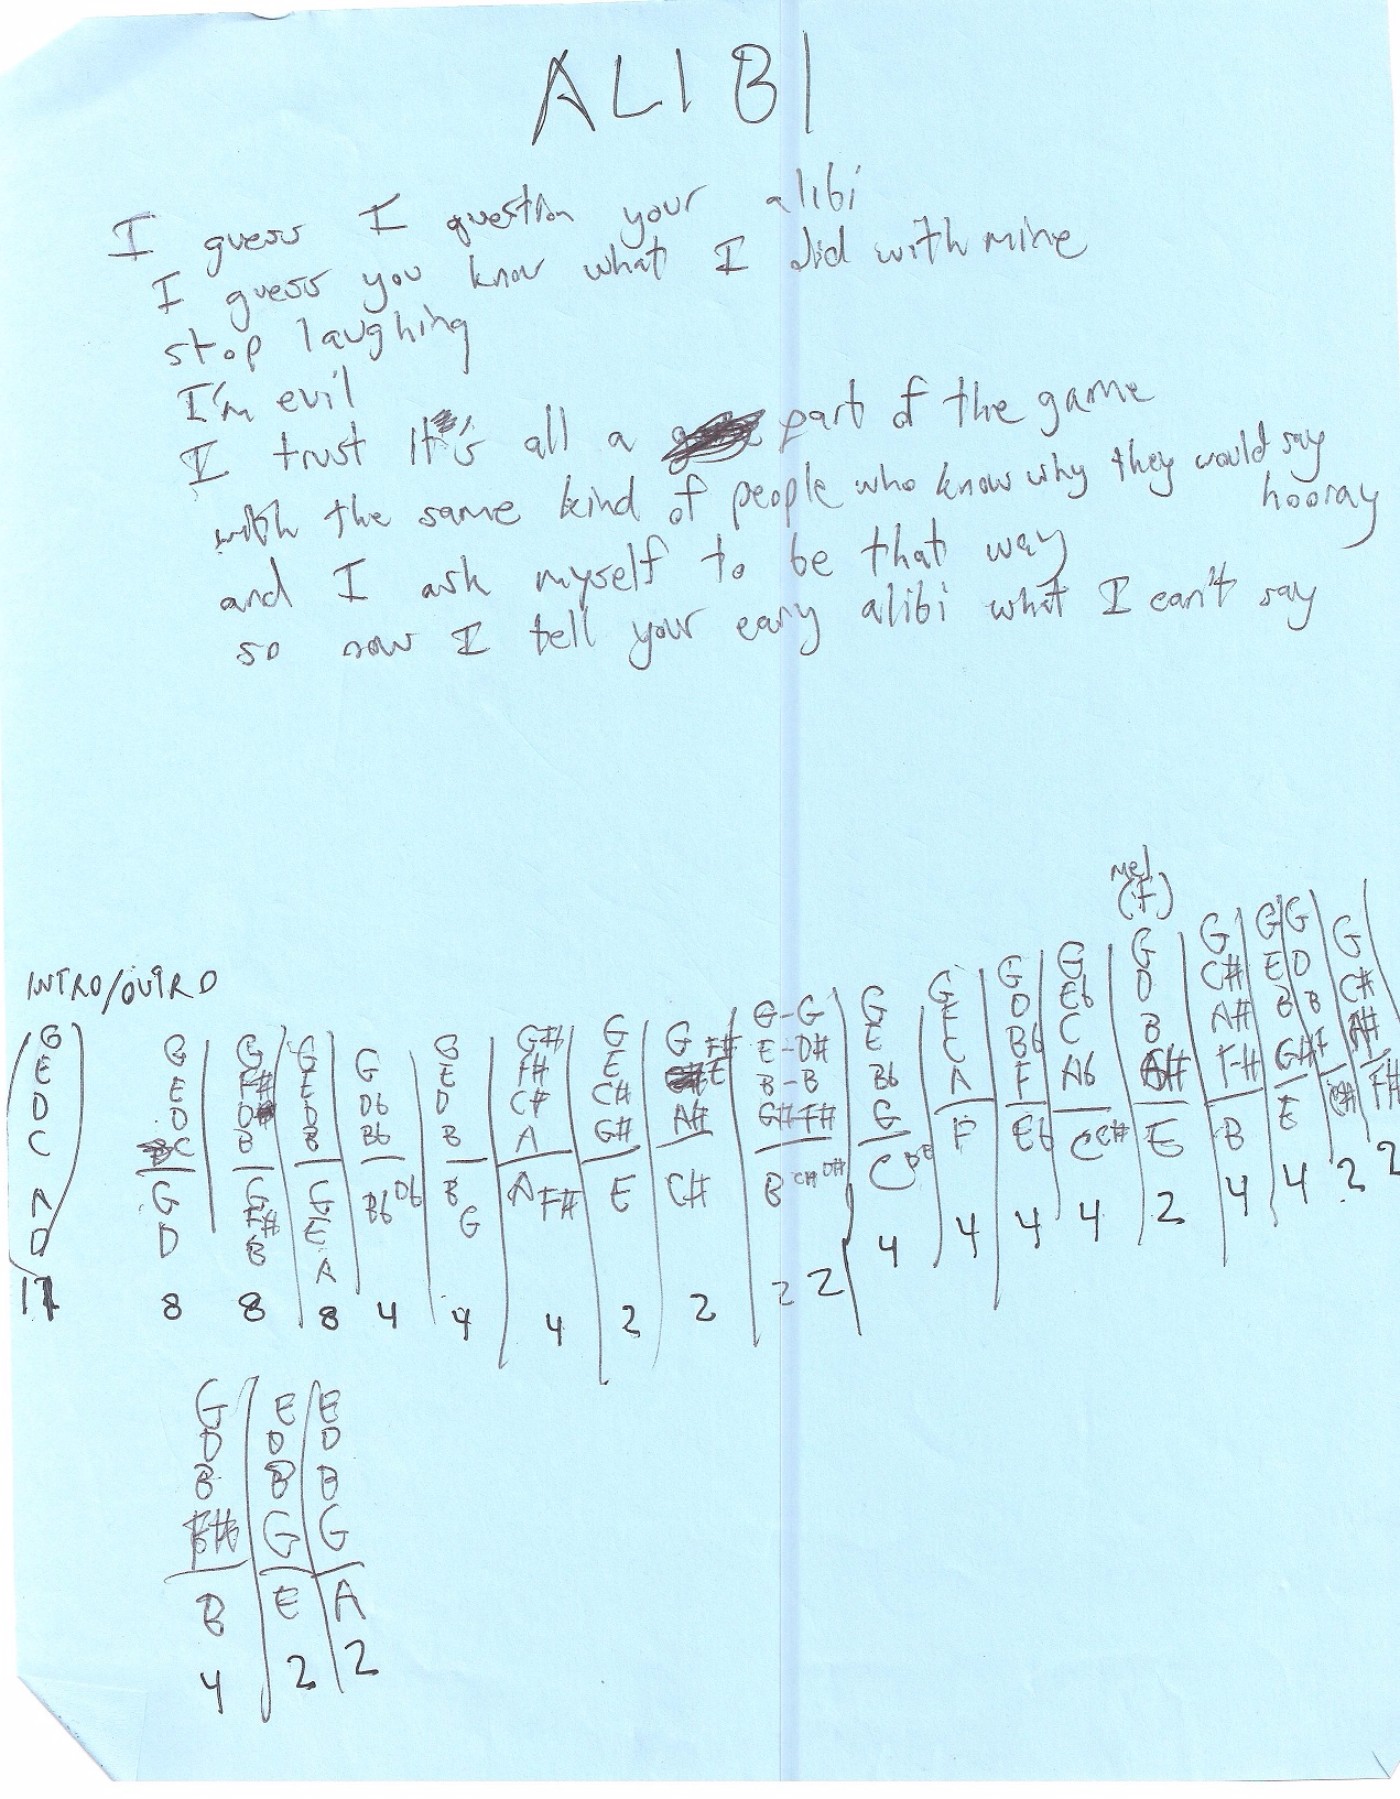 ALIBI
I guess I question your alibi
I guess you know what I did with mine
stop laughing
I'm evil
I trust it's all a part of the game
with the same kind of people who know why they would say
hooray
and I ask myself to be that way
so now I tell your easy alibi what I can't say
mel
(F)
INTRO/OUTRO
G G G G G G G# G G F# G-G G G G G G G G G G
E E F# E Db E F# E E E-D# E E D Eb D C# E D C#
D D D# D Bb D C# C# A# B-B Bb C Bb C B A# B B A#
C C B B B A G# G#-F# G A F Ab G# F# G# F
A G G G Bb Db B G A F# E C# B C# D# C F Eb C C# E B E C# F#
D D F# E
B A
11 8 8 8 4 4 4 2 2 2 2 4 4 4 4 2 4 4 2 2
G E E
D D D
B B B
F# G G
B E A
4 2 2